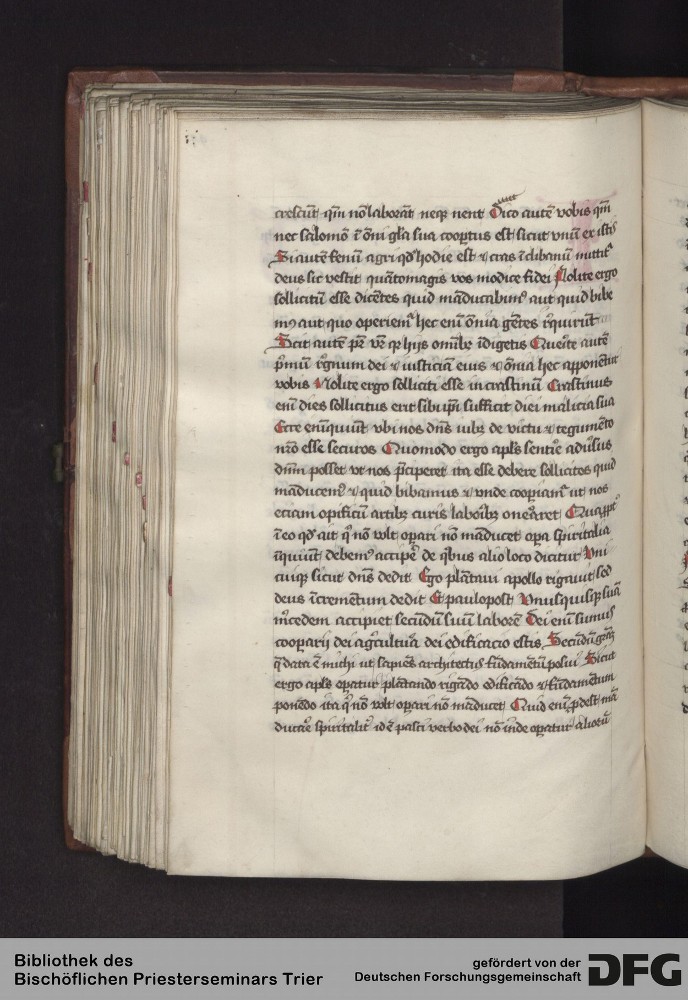 crescūt qm̄ nō laborāt neqꝫ nent Dico autē vobis qm̄
nec salomō ī om̄i gl̄a sua coop̄tus est sicut vnū ex istis
Si autē fenū agri qd̓ hodie est ⁊ cras ī clibanū mittit᷑
deus sic vestit quātomagis vos modice fidei Nolite ergo
solliciti esse dicētes quid māducabimꝰ aut quid bibe
mꝰ aut quo operiem᷑ hec enī om̄ia gētes rꝗrirūt
Scit autē pr̄ vr̄ qꝛ hijs om̄ibꝫ īdigetis Querite autē
p̄mū regnum dei ⁊ iusticiā eius ⁊ om̄ia hec apponētur
vobis Nolite ergo solliciti esse in crastinū Crastinus
enī dies sollicitus erit sibi ipi sufficit diei malicia sua
Ecce enī inquiūt vbi nos dn̄s iubꝫ de victu ⁊ tegumēto
nr̄o esse securos Quomodo ergo apl̄s sentire aduersus
dn̄m posset vt nos p̄ciperet ita esse debere sollicitos quid
māducemꝰ ⁊ quid bibamus ⁊ vnde coopiam᷑ ut nos
eciam opificū artibꝫ curis laboribꝫ oneraret Quapp̄t᷑
ī eo qd̓ ait q̄ nō vult oꝑari nō māducet oꝑa spiritalia
inquiūt debemꝰ accipe de qͥbus alio loco dicitur Vni
cuiqꝫ sicut dn̄s dedit Ego plātaui apollo rigauit sed
deus īcrementum dedit Et paulopost Vnusquisqꝫ suā
m̄cedem accipiet secūdū suū laborē Dei enī sumus
cooparij dei agͥcultura dei edificacio estis Secūdū grām
q̄ data ē michi ut sapiēs architectꝰ fūdamētū posui Sicut
ergo apl̄s oꝑatur plātando rigādo edificādo ⁊ fūdamētum
ponēdo ita q̄ nō vult oꝑari nō māducet Quid enī ꝓdest mā
ducare spiritalit᷑ id ē pasci verbo dei nō inde oꝑatur aliorū
Bibliothek des
Bischöflichen Priesterseminars Trier
gefördert von der
Deutschen Forschungsgemeinschaft
DFG